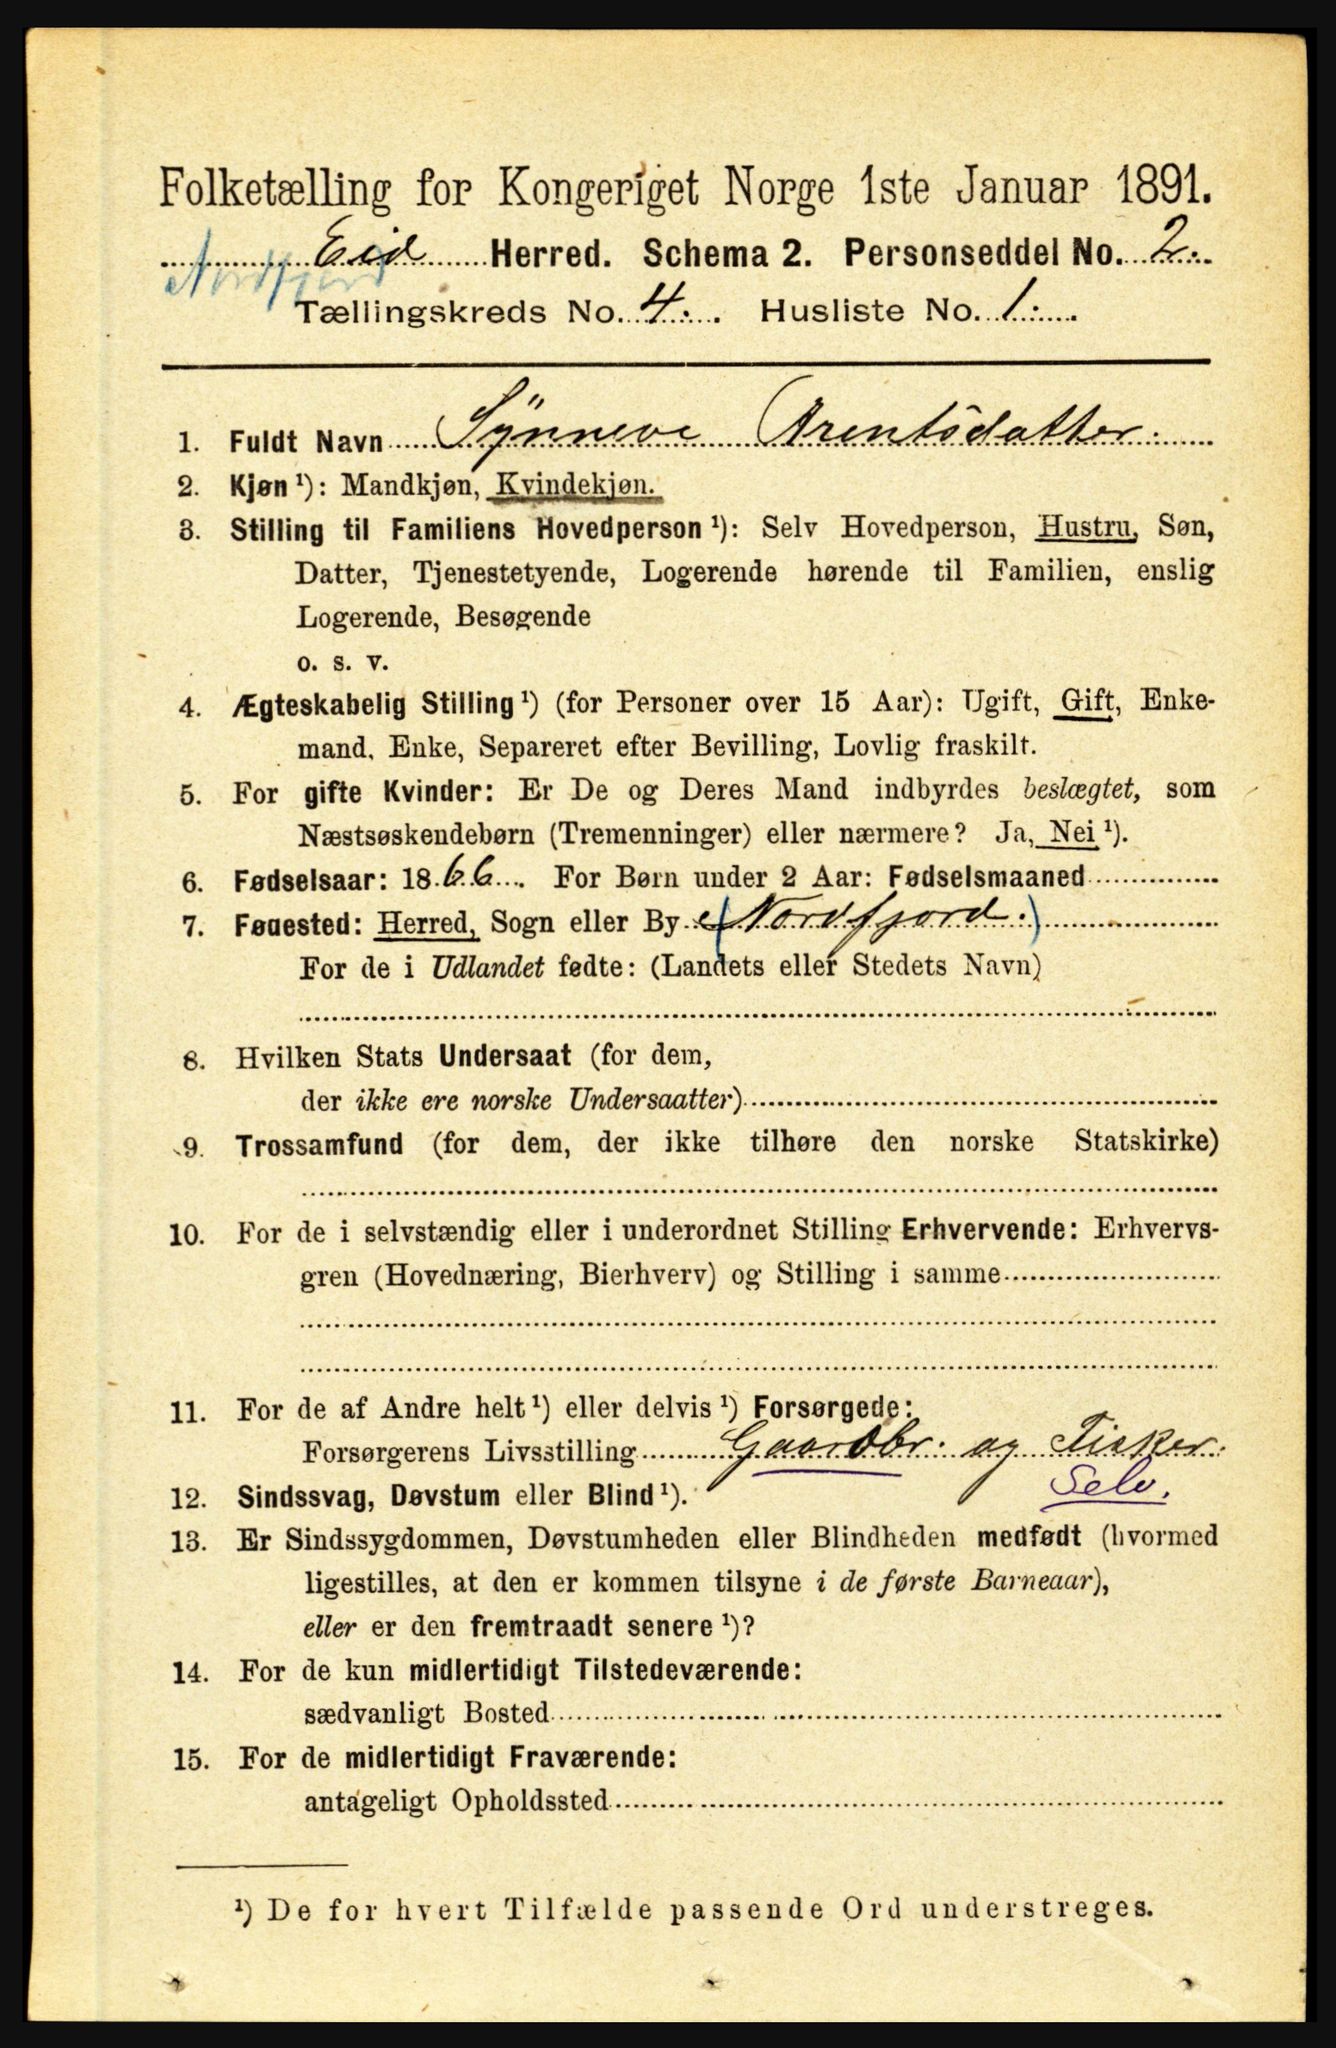 Folketælling for Kongeriget Norge 1ste Januar 1891.
Eid Herred. Schema 2. Personseddel No. 2.
Nordfjord
Tællingskreds No. 4. Husliste No. 1.
1. Fuldt Navn Synneve Arentsdatter.
2. Kjøn¹): Mandkjøn, Kvindekjøn.
3. Stilling til Familiens Hovedperson¹): Selv Hovedperson, Hustru, Søn,
Datter, Tjenestetyende, Logerende hørende til Familien, enslig
Logerende, Besøgende
o. s. v.
4. Ægteskabelig Stilling¹) (for Personer over 15 Aar): Ugift, Gift, Enke-
mand, Enke, Separeret efter Bevilling, Lovlig fraskilt.
5. For gifte Kvinder: Er De og Deres Mand indbyrdes beslægtet, som
Næstsøskendebørn (Tremenninger) eller nærmere? Ja, Nei¹).
6. Fødselsaar: 1866. For Børn under 2 Aar: Fødselsmaaned
7. Fødested: Herred, Sogn eller By (Nordfjord.)
For de i Udlandet fødte: (Landets eller Stedets Navn)
8. Hvilken Stats Undersaat (for dem,
der ikke ere norske Undersaatter)
9. Trossamfund (for dem, der ikke tilhøre den norske Statskirke)
10. For de i selvstændig eller i underordnet Stilling Erhvervende: Erhvervs-
gren (Hovednæring, Bierhverv) og Stilling i samme
11. For de af Andre helt¹) eller delvis¹) Forsørgede:
Forsørgerens Livsstilling Gaardbr. og Fisker.
12. Sindssvag, Døvstum eller Blind¹). Selv.
13. Er Sindssygdommen, Døvstumheden eller Blindheden medfødt (hvormed
ligestilles, at den er kommen tilsyne i de første Barneaar),
eller er den fremtraadt senere¹)?
14. For de kun midlertidigt Tilstedeværende:
sædvanligt Bosted
15. For de midlertidigt Fraværende:
antageligt Opholdssted
¹) De for hvert Tilfælde passende Ord understreges.